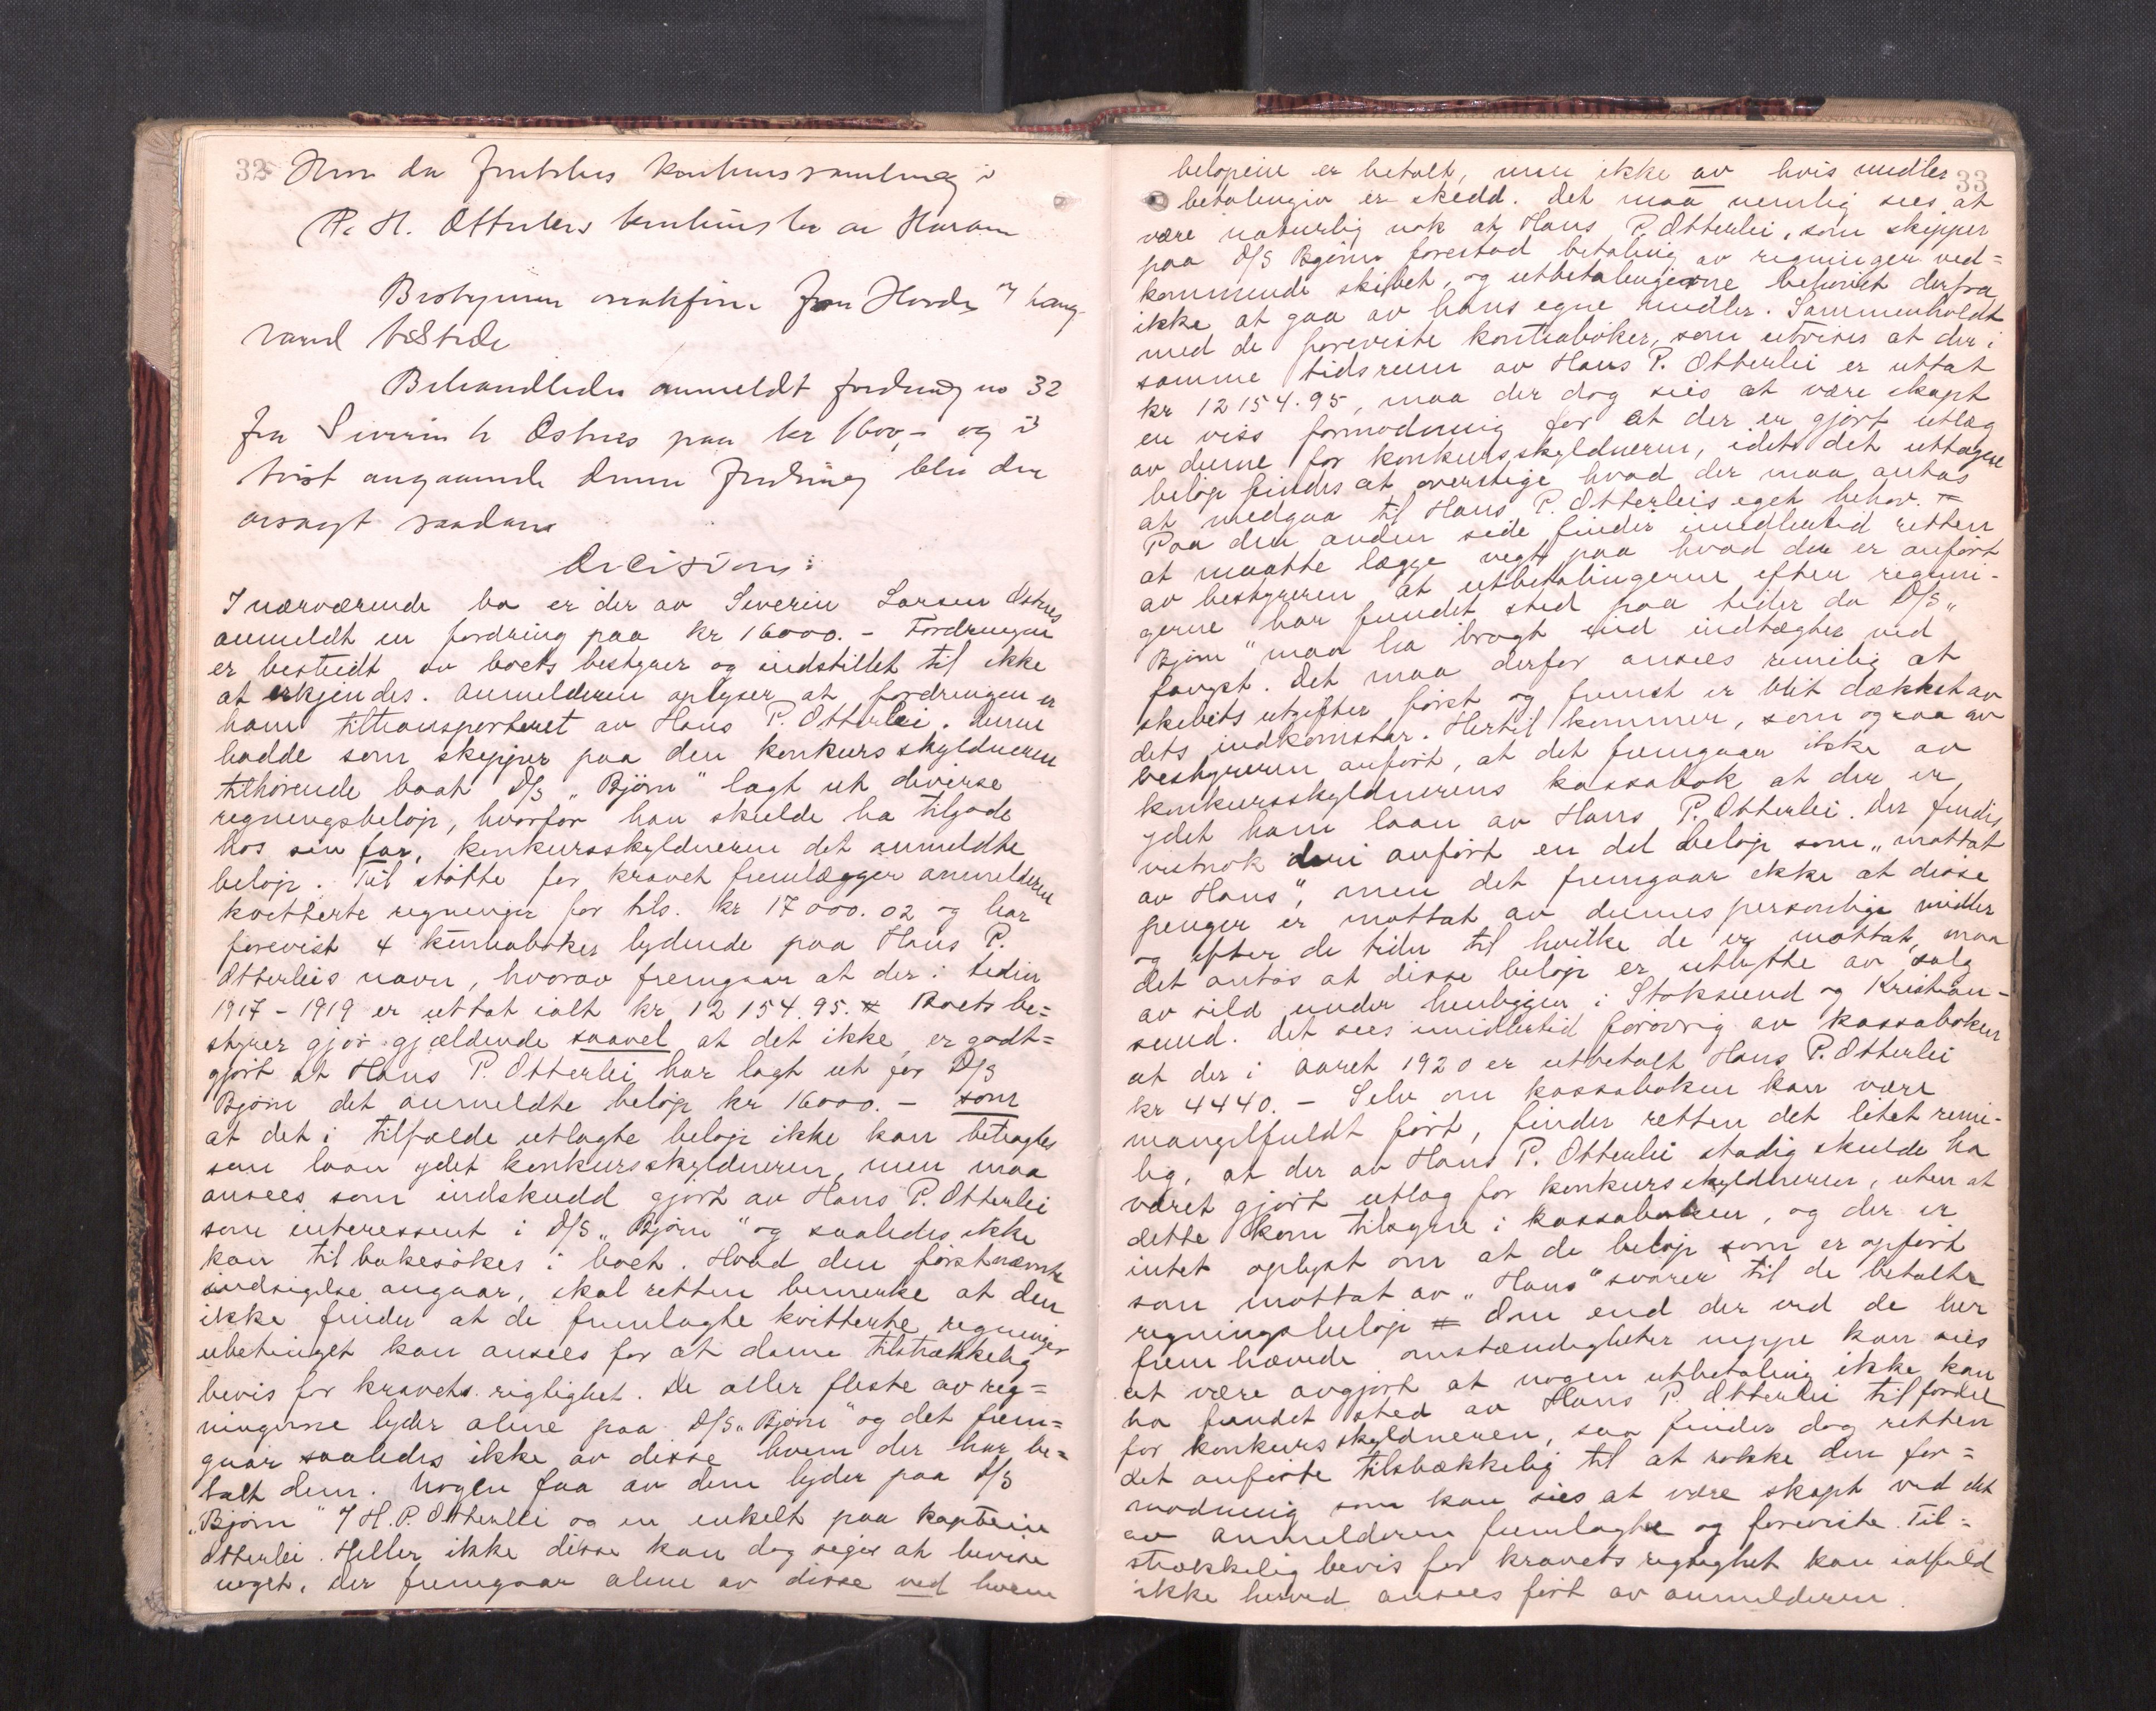 32
Hvor da fortsattes konkurssamling i
P. H. Otterleis konkursbo av Haram
Bestyreren
vand tilstede
Behandledes anmeldt fordring no 32
fra Severin L Østnes paa kr 1600,- og i
tvist angaaende denne fordring blev der
avsagt saadan
Decision:
I nærværende bo er der av Severin Larsen Østnes
anmeldt en fordring paa kr 16000.- Fordringen
er bestridt av boets bestyrer og indstillet til ikke
at erkjendes. Anmelderen oplyser at fordringen er
ham tiltransporteret av Hans P. Otterlei. Denne
hadde som skipper paa den konkursskyldneren
tilhørende baat D/S „Bjørn" lagt ut diverse
regningsbeløp, hvorfor han skulde ha tilgode
hos sin far, konkursskyldneren det anmeldte
beløp. Til støtte for kravet fremlægger anmelderen
kvitterte regninger for tils. kr 17000.02 og har
forevist 4 kontrabøker lydende paa Hans P.
Otterleis navn, hvorav fremgaar at der i tiden
1917-1919 er uttat ialt kr 12154.95. Boets be=
styrer gjør gjældende saavel at det ikke er godt=
gjort at Hans P. Otterlei har lagt ut for D/S
Bjørn det anmeldte beløp kr 16000.- som
at det i tilfælde utlagte beløp ikke kan betragtes
som laan ydet konkursskyldneren, men maa
ansees som indskudd gjort av Hans P. Otterlei
som interessent i D/S „Bjørn" og saaledes ikke
kan tilbakesøkes i boet. Hvad den førstnævnte
indsigelse angaar, skal retten bemerke at den
ikke finder at de fremlagte kvitterte regninger
ubetinget kan ansees for at danne tilstrækkelig
bevis for kravets rigtighet. De aller fleste av reg=
ningerne lyder alene paa D/S „Bjørn" og det frem=
gaar saaledes ikke av disse hvem der har be=
talt dem. Nogen faa av dem lyder paa D/S
„Bjørn" / H. P. Otterlei og en enkelt paa kaptein
Otterlei. Heller ikke disse kan dog siges at bevise
noget. Der fremgaar alene av disse ved hvem
33
beløpene er betalt, men ikke av hvis midler
betalingen er skedd. Det maa nemlig sies at
være naturlig nok at Hans P. Otterlei, som skipper
paa D/S Bjørn forestod betaling av regninger ved=
kommende skibet, og utbetalingerne behøvet derfra
ikke at gaa av hans egne midler. Sammenholdt
med de foreviste kontrabøker, som utviser at der i
samme tidsrum av Hans P. Otterlei er uttat
kr 12154.95, maa der dog sies at være skapt
en viss formodning for at der er gjort utlæg
av denne for konkursskyldneren, idet det uttagne
beløp findes at overstige hvad der maa antas
at medgaa til Hans P. Otterleis eget behov.
Paa den anden side finder imidlertid retten
at maatte lægge vegt paa hvad der er anført
av bestyreren at utbetalingerne efter regnin-
gerne har fundet sted paa tider da D/S „
Bjørn" maa ha bragt ind indtægter ved
fangst. Det maa derfor ansees rimelig at
skibets utgifter først og fremst er blit dækket av
dets indkomster. Hertil kommer, som ogsaa av
bestyreren anført, at det fremgaar ikke av
konkursskyldnerens kassabok at der er
ydet ham laan av Hans P. Otterlei. Der findes
vistnok deri anført en del beløp som „mottat
av Hans", men det fremgaar ikke at disse
penger er mottat av dennes personlige midler
og efter de tider til hvilke de er mottat, maa
det antas at disse beløp er utbytte av salg
av sild under henliggen i Stoksund og Kristian-
sund. Det sees imidlertid forøvrig av kassaboken
at der i aaret 1920 er utbetalt Hans P. Otterlei
kr 4440.- Selv om kassaboken kan være
mangelfuldt ført, finder retten det litet rime-
lig, at der av Hans P. Otterlei stadig skulde ha
været gjort utlæg for konkursskyldneren, uten at
dette kom tilsyne i kassaboken, og der er
intet oplyst om at de beløp som er opført
som mottat av „Hans" svarer til de betalte
regningsbeløp Om end der ved de her
fremhævede omstændigheter neppe kan sies
at være avgjort at nogen utbetaling ikke kan
ha fundet sted av Hans P. Otterlei til fordel
for konkursskyldneren, saa finder dog retten
det anførte tilstrækkelig til at rokke den for=
modning som kan sies at være skapt ved det
av anmelderen fremlagte og foreviste. Til=
strækkelig bevis for kravets rigtighet kan ialfald
ikke herved ansees ført av anmelderen.